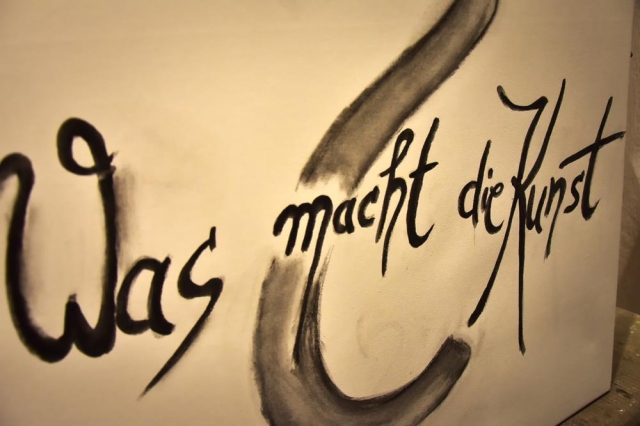 Was macht die Kunst